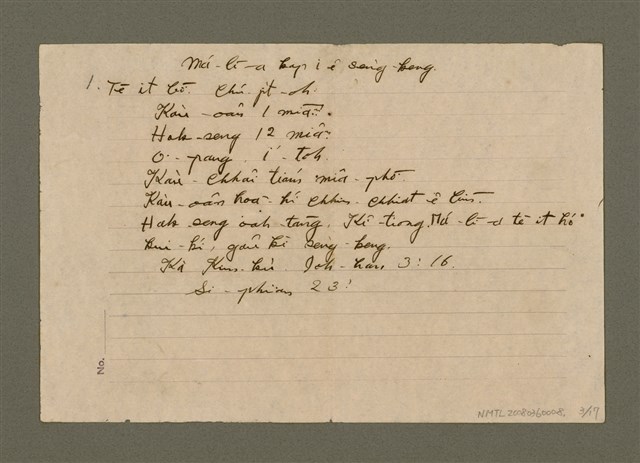 Má-lī-a kap i ê sèng-keng.
1. Tē it bō. Chú-ji̍t-o̍h
Kàu-oân 1 miâ.
Ha̍k-seng 12 miâ.
O-pang. í-toh.
Kàu-chhâi tiám miâ-phō
Kàu-oân hoa-hí chhin-chhiat ê bīn.
Ha̍k seng oa̍h-tāng. Kî-tiong Má-lī-a tē it hó
kui-kí, gâu kì sèng-keng.
Kà Kim-kù. Iok-hān 3:16.
Si-phian 23:
No.
NMTL20080360008. 3/17